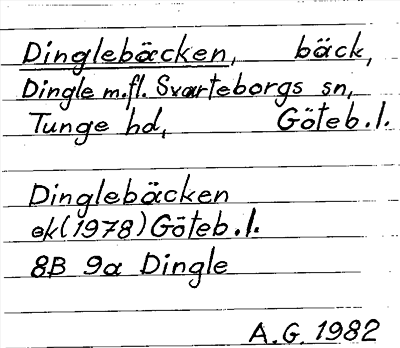 Dinglebäcken, bäck,
Dingle m.fl. Svarteborgs sn,
Tunge hd, Göteb.l.
Dinglebäcken
ek(1978) Göteb.l.
8B 9a Dingle
A.G. 1982